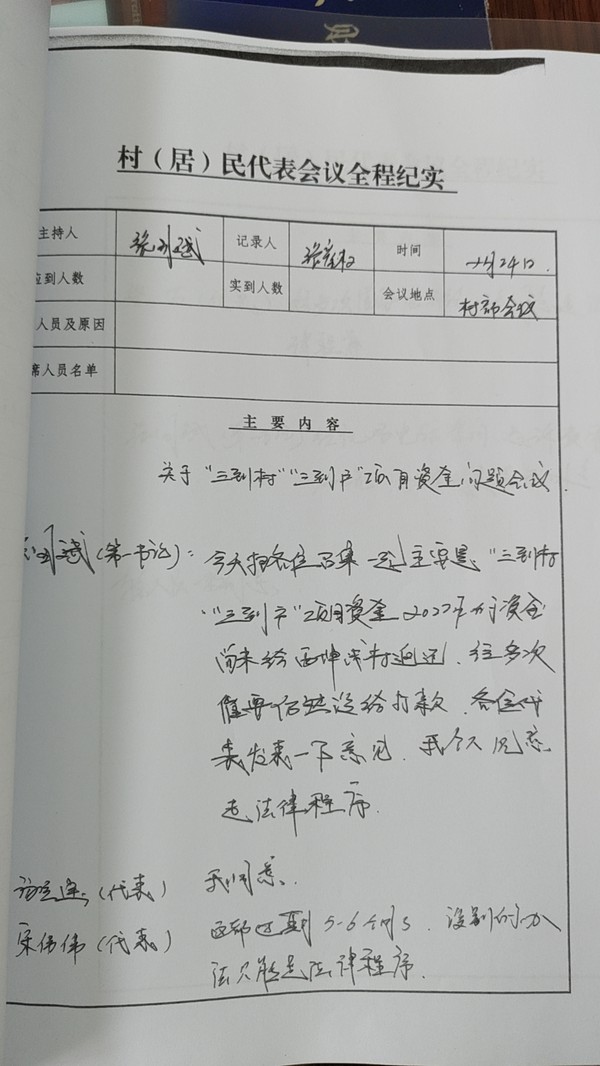 村（居）民代表会议全程纪实
主持人 记录人 时间 月24日.
应到人数 实到人数 会议地点 村部会议
人员及原因
席人员名单
主要内容
关于"三到村""三到户"项目资金问题会议.
(第一书记)：今天把各位召集一起主要是、"三到村
"三到户"项目资金2022年 资金
尚未给西 村返还. 经多次
催要仍然没给打款. 各位代
表发表一下意见. 我个人 意
走法律程序.
(代表) 我同意.
宋伟伟(代表) 已超期5-6个月了. 没别的办
法只能走法律程序.